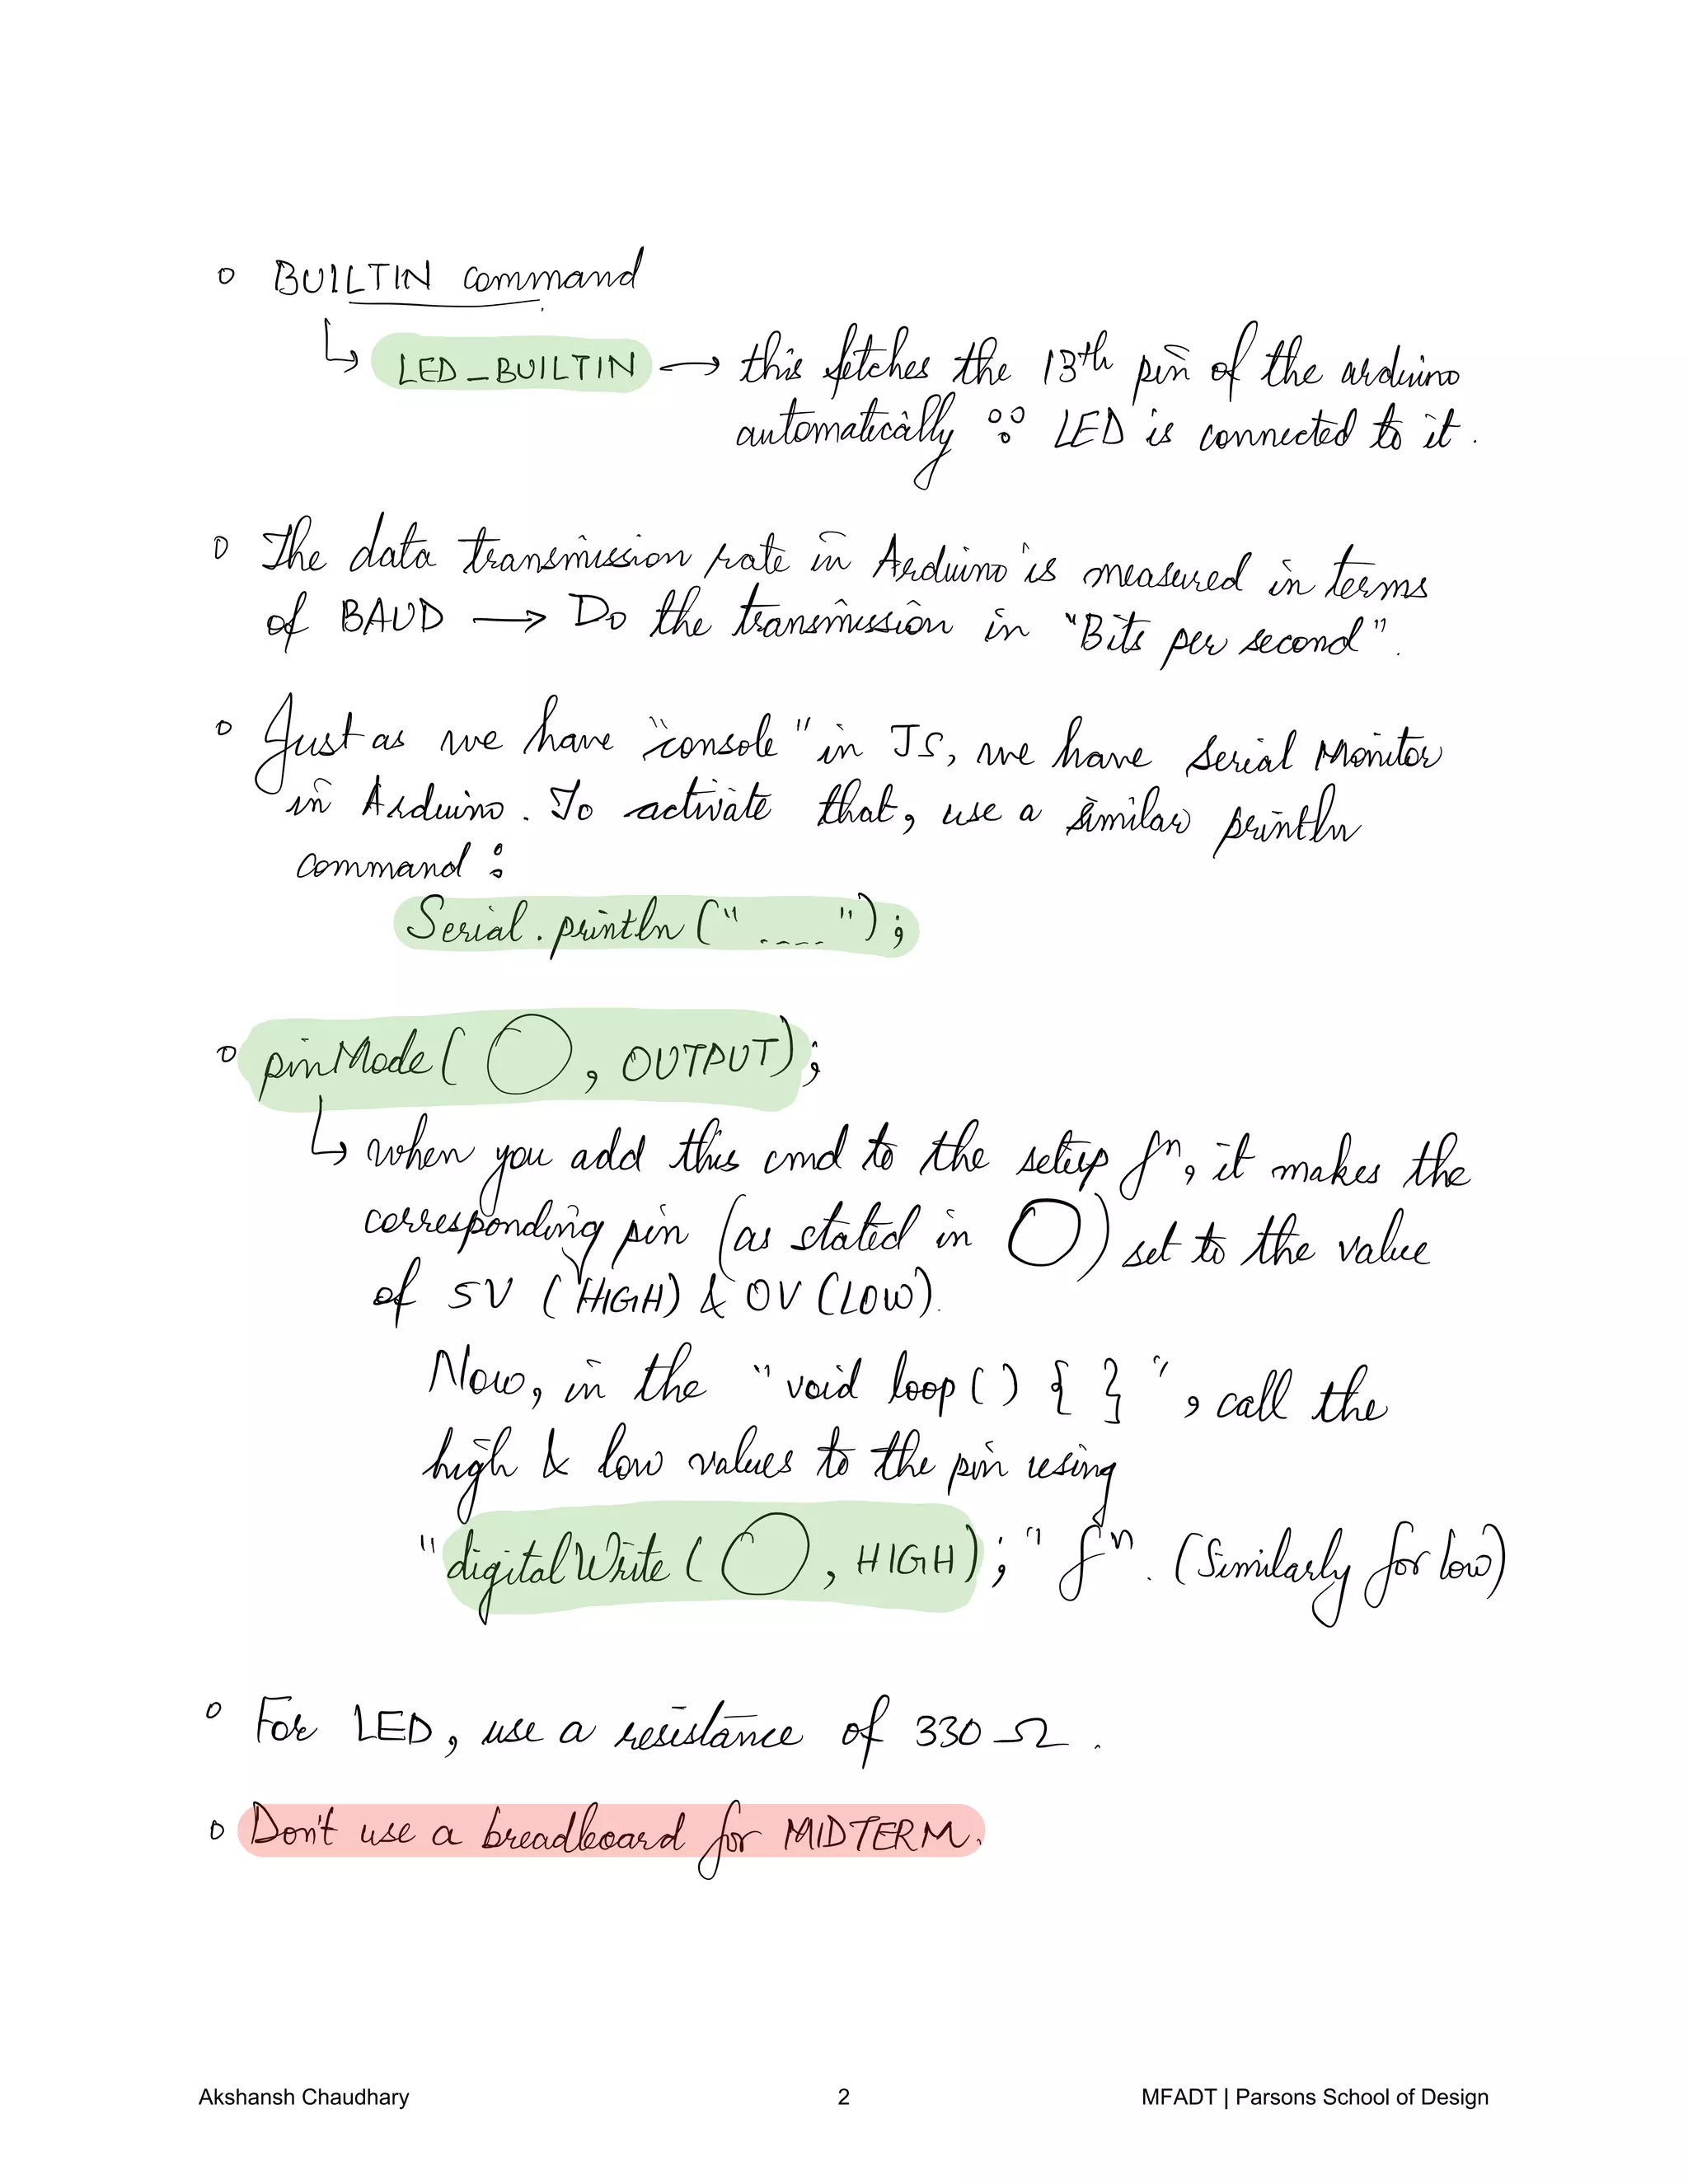 BUILTIN command
↳ LED_BUILTIN → this fetches the 13th pin of the arduino
automatically ∵ LED is connected to it.
The data transmission rate in Arduino is measured in terms
of BAUD → Do the transmission in "Bits per second".
Just as we have "console" in JS, we have Serial Monitor
in Arduino. To activate that, use a similar println
command :
Serial.println(" .... ");
pinMode( ◯ , OUTPUT);
↳ when you add this cmd to the setup fⁿ, it makes the
corresponding pin (as stated in ◯ ) set to the value
of 5V (HIGH) & 0V (LOW).
Now, in the "void loop() { }", call the
high & low values to the pin using
"digitalWrite( ◯ , HIGH);" fⁿ. (Similarly for low)
For LED, use a resistance of 330 Ω.
Don't use a breadboard for MIDTERM.
Akshansh Chaudhary 2 MFADT | Parsons School of Design